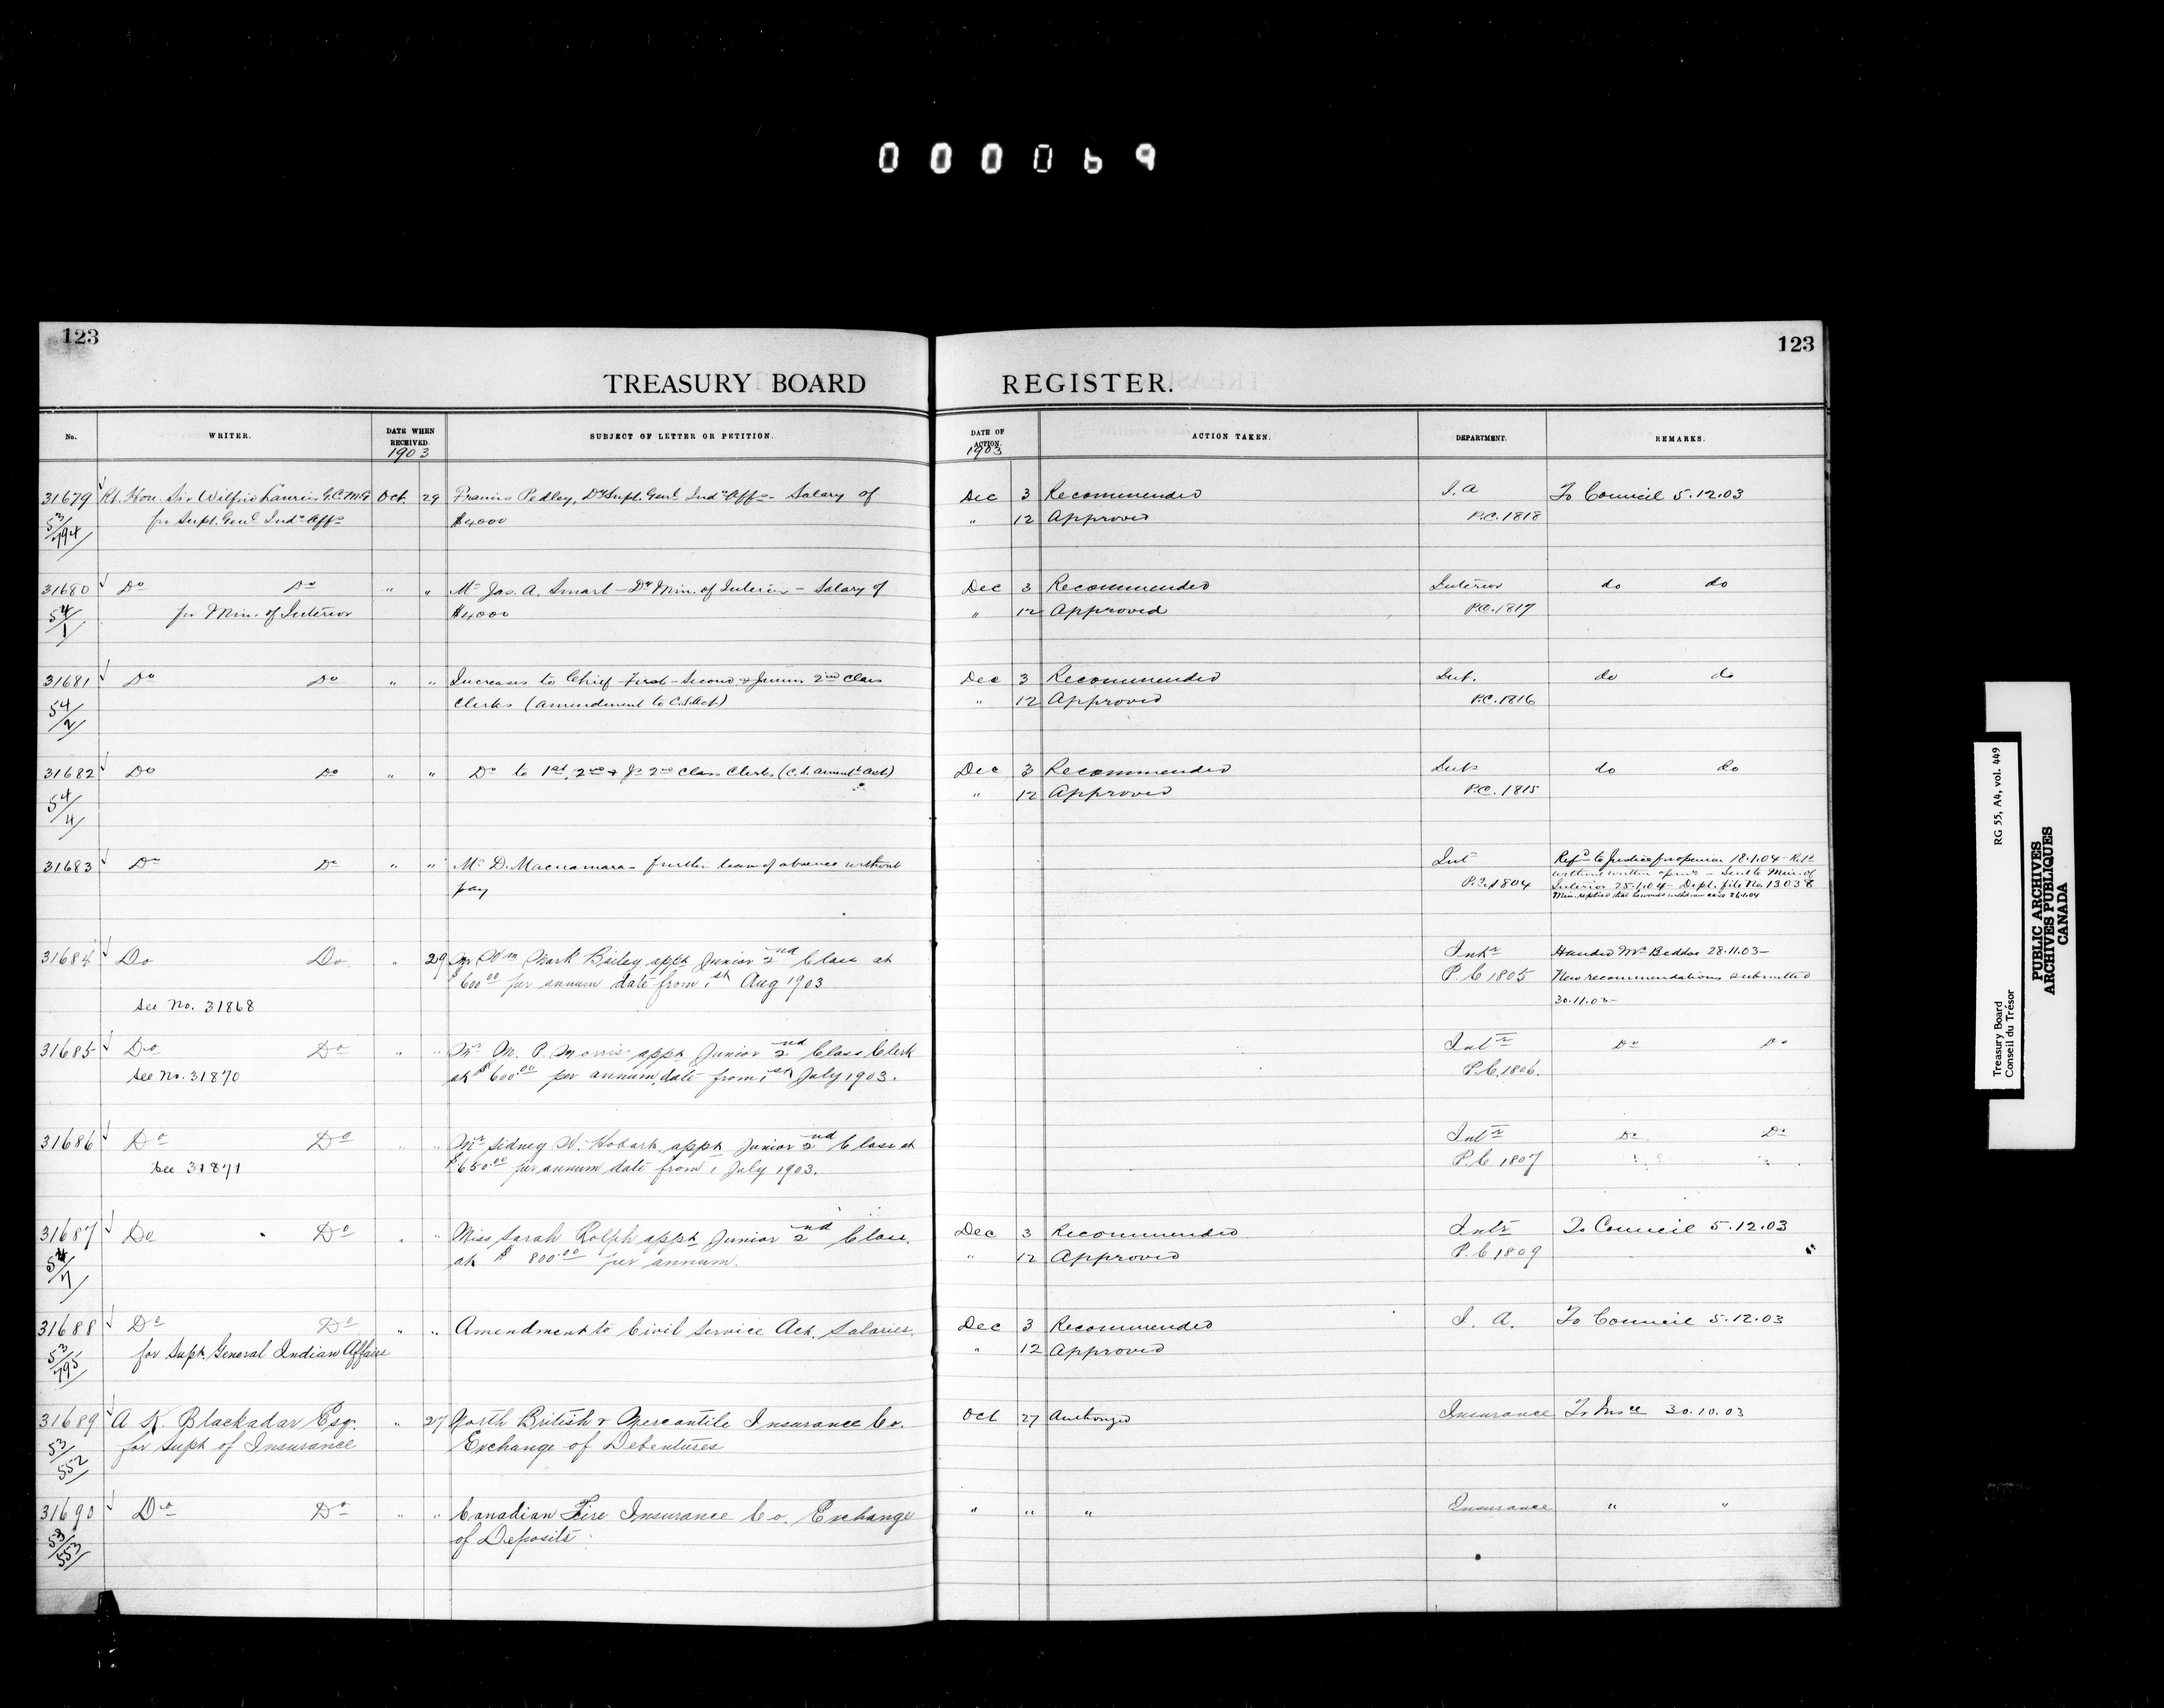 000069
123
123
TREASURY BOARD REGISTER.
No. WRITER. DATE WHEN RECEIVED. SUBJECT OF LETTER OR PETITION. DATE OF ACTION. ACTION TAKEN. DEPARTMENT. REMARKS.
1903 1903
31679 Rt. Hon. Sir Wilfrid Laurier G.C.M.G Oct. 29 Francis Pedley, Dy Supt. Genl Indn Affs - Salary of Dec 3 Recommended I.A To Council 5.12.03
53/794 for Supt. Genl Indn Affs $4000 " 12 Approved P.C. 1818
31680 Do Do " " Mr Jas. A. Smart - Dy Min. of Interior - Salary of Dec 3 Recommended Interior do do
54/1 for Min. of Interior $4000 " 12 Approved P.C. 1817
31681 Do Do " " Increases to Chief - First - Second & Junior 2nd Class Dec 3 Recommended Int. do do
54/2 Clerks (amendment to C.S. Act) " 12 Approved P.C. 1816
31682 Do Do " " Do to 1st, 2nd & Jr 2nd Class Clerks (C.S. Amendt Act) Dec 3 Recommended Int do do
54/4 " 12 Approved P.C. 1815
31683 Do Do " " Mr D. Macnamara - further leave of absence without Int Refd to Justice for opinion 18.1.04 - Retd
pay P.C. 1804 without written opin - Sent to Min. of
Interior 25.1.04 - Dept. file No. 13038
Min. replied that he would withdraw case 26.1.04
31684 Do Do " 29 Mr Wm Mark Bailey appt Junior 2nd Class at Intr Handed Mr Beddoe 28.11.03 -
$600.00 per annum date from 1st Aug 1903 P.C 1805 New recommendations submitted
See No. 31868 30.11.03 -
31685 Do Do " " Mr M. P. Morris appt Junior 2nd Class Clerk Intr Do Do
See No. 31870 at $600.00 per annum, date from 1st July 1903. P.C. 1806.
31686 Do Do " " Mr Sidney W. Hobart appt Junior 2nd Class at Intr Do Do
See 31871 $650.00 per annum date from 1 July 1903. P.C 1807
31687 Do Do " " Miss Sarah Rolph appt Junior 2nd Class. Dec 3 Recommended Intr To Council 5.12.03
54/7 at $800.00 per annum. " 12 Approved P.C 1809
31688 Do Do " " Amendment to Civil Service Act. Salaries. Dec 3 Recommended I. A. To Council 5.12.03
53/795 for Supt. General Indian Affairs " 12 Approved
31689 A K. Blackadar Esq. " 27 North British & Mercantile Insurance Co. Oct 27 Authorized Insurance To Insce 30.10.03
53/552 for Supt of Insurance Exchange of Debentures
31690 Do Do " " Canadian Fire Insurance Co. Exchange " " " Insurance " "
53/553 of Deposits
Treasury Board RG 55, A4, vol. 449
Conseil du Trésor
PUBLIC ARCHIVES
ARCHIVES PUBLIQUES
CANADA